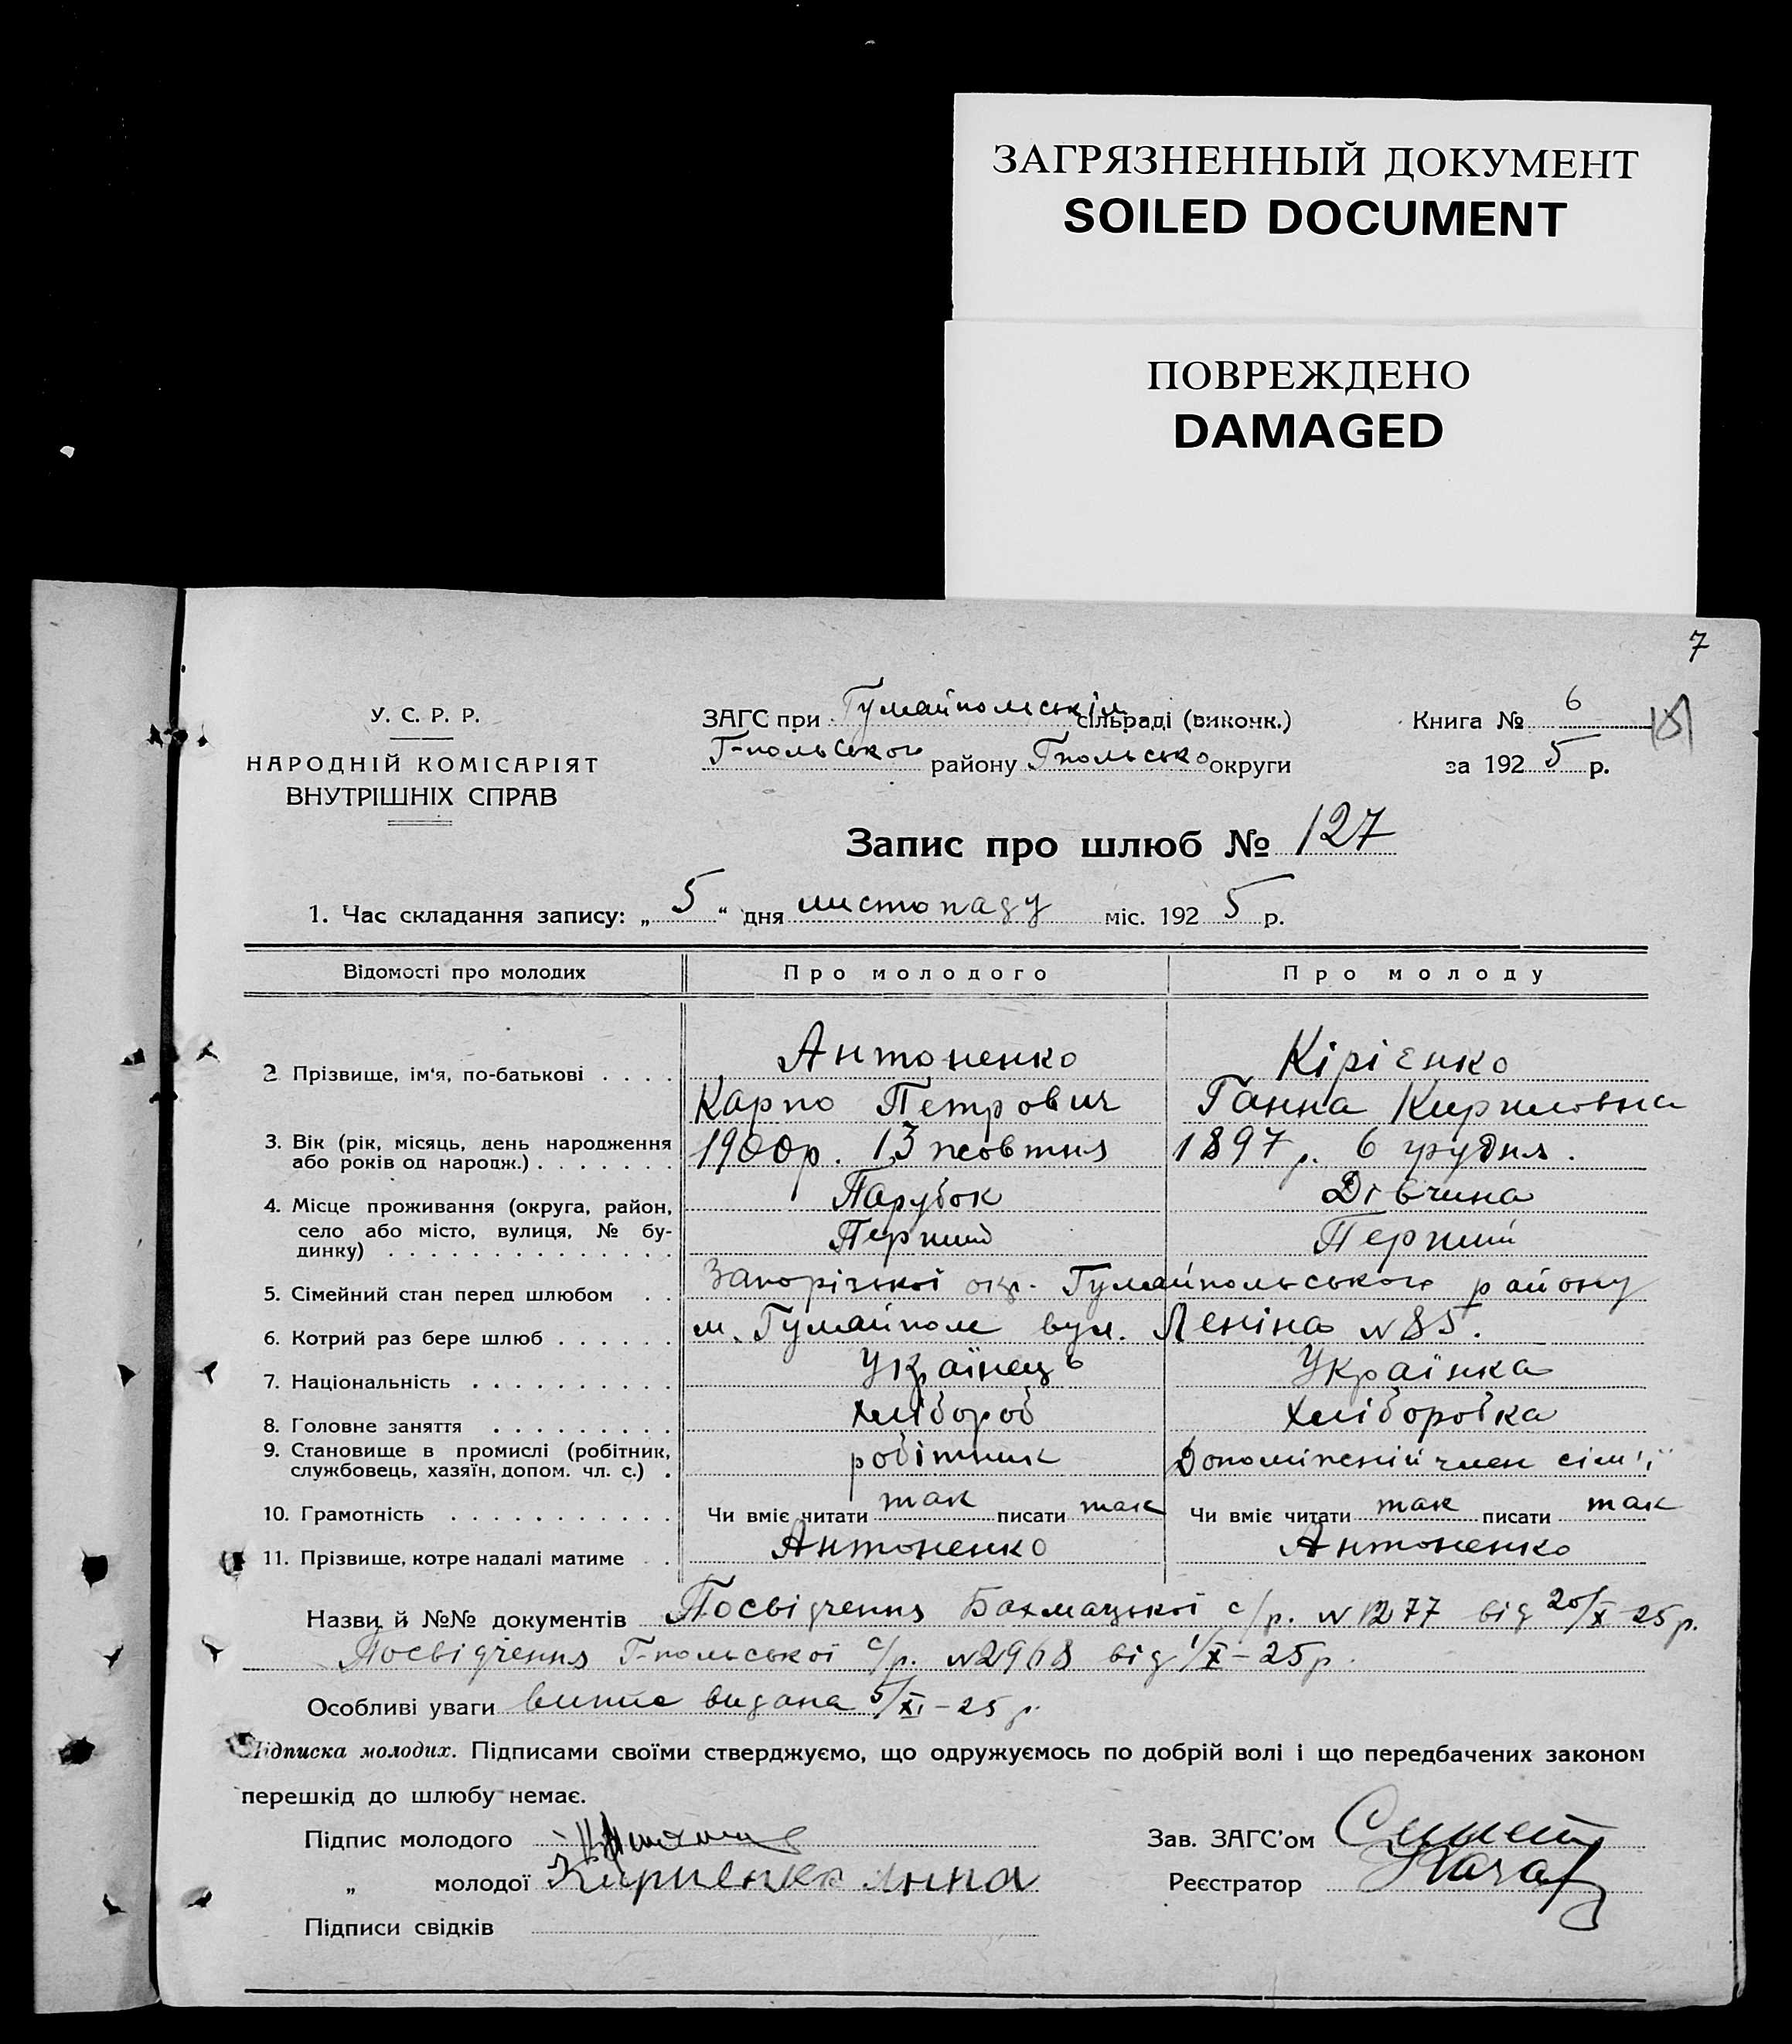 ЗАГРЯЗНЕННЫЙ ДОКУМЕНТ
SOILED DOCUMENT
ПОВРЕЖДЕНО
DAMAGED
7
У. С. Р. Р.
НАРОДНІЙ КОМІСАРІЯТ
ВНУТРІШНІХ СПРАВ
ЗАГС при Гуляйпольскім сільраді (виконк.)
Г-польського району Гпольсько округи
Книга № 6
за 1925 р.
Запис про шлюб № 127
1. Час складання запису: „5“ дня листопаду міс. 1925 р.
Відомості про молодих Про молодого Про молоду
2 Прізвище, ім'я, по-батькові . . . . Антоненко Кірієнко
Карпо Петрович Ганна Кириловна
3. Вік (рік, місяць, день народження
або років од народж.) . . . . . . . 1900р. 13 жовтня 1897 р. 6 грудня.
4. Місце проживання (округа, район, Парубок Дівчина
село або місто, вулиця, № бу-
динку) . . . . . . . . . . . . . . Перший Перший
5. Сімейний стан перед шлюбом . . Запорізької окр. Гуляйпольського району
6. Котрий раз бере шлюб . . . . . . м. Гуляйполе вул. Леніна №85.
7. Національність . . . . . . . . . . Українець Українка
8. Головне заняття . . . . . . . . . Хлібороб Хліборобка
9. Становище в промислі (робітник,
службовець, хазяїн, допом. чл. с.) . робітник Допоміжний член сім'ї
10. Грамотність . . . . . . . . . . . Чи вміє читати так писати так Чи вміє читати так писати так
11. Прізвище, котре надалі матиме . . Антоненко Антоненко
Назви й №№ документів Посвідчення Бахмацької с/р. №1277 від 20/X-25р.
Посвідчення Г-польської с/р. №2968 від 1/X-25р.
Особливі уваги випис видана 5/XI-25 р.
Підписка молодих. Підписами своїми стверджуємо, що одружуємось по добрій волі і що передбачених законом
перешкід до шлюбу немає.
Підпис молодого Зав. ЗАГС'ом
„ молодої Кириенко Анна Реєстратор
Підписи свідків